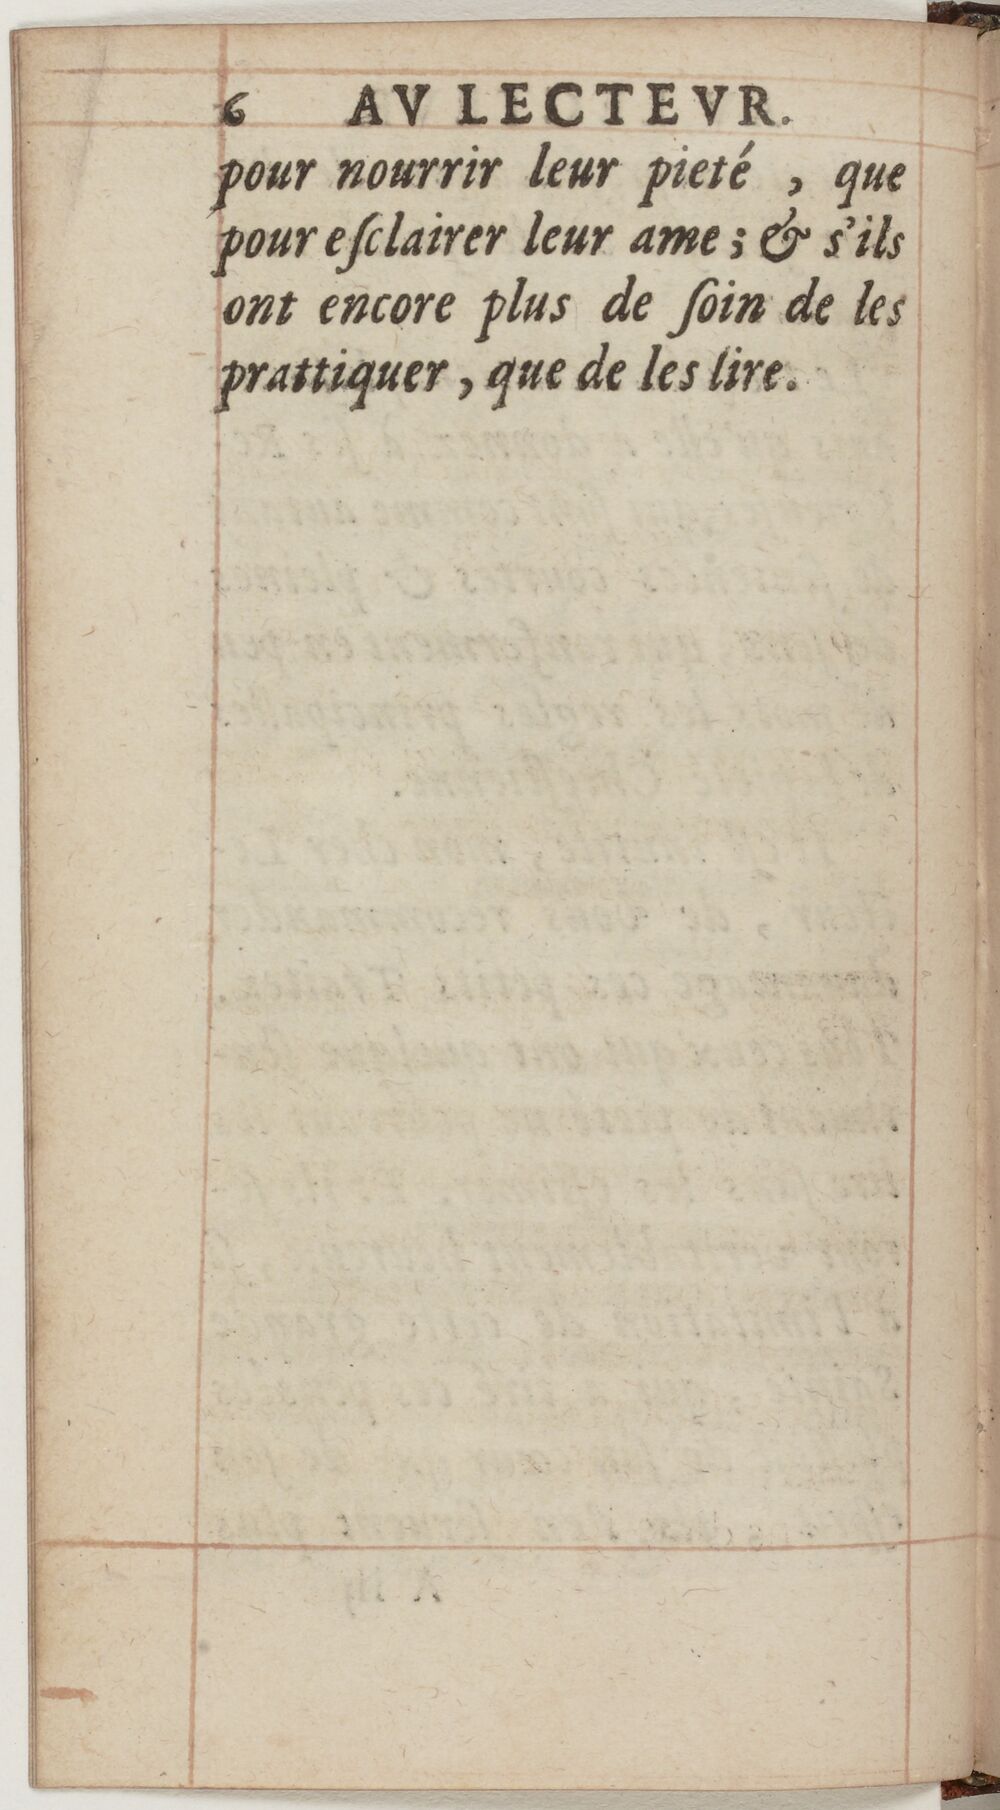 6 AV LECTEVR.
pour nourrir leur pieté , que
pour eſclairer leur ame ; & s'ils
ont encore plus de ſoin de les
prattiquer , que de les lire.